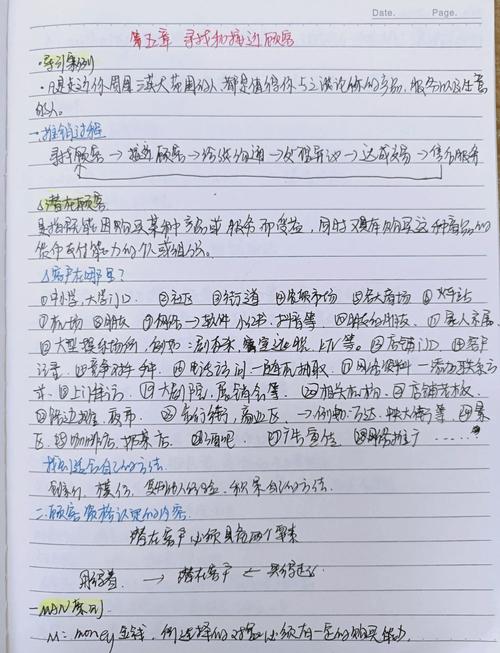 Date. Page.
第五章 寻找和接近顾客
·导引案例
·凡是走近你周围三英尺范围的人,都是值得你与之谈论你的产品、服务以及生意
的人。
一、推销过程
寻找顾客 → 接近顾客 → 洽谈沟通 → 处理异议 → 达成交易 → 售后服务
潜在顾客
是指既能因购买某种产品或服务而受益,同时又具有购买这种商品的
货币支付能力的个人或组织。
客户在哪里?
①中学、大学门口 ②社区 ③街道 ④ 市场 ⑤各大商场 ⑥火车站
⑦机场 ⑧朋友 ⑨网络→软件 小红书、抖音等 ⑩朋友的朋友 ⑪
⑫大型娱乐场所,例如: KTV等。⑬店铺门口 ⑭客户
记录 ⑮竞争对手 ⑯电话访问 一随机抽取 ⑰网络资料 一添加联系方
式 ⑱上门推访 ⑲大剧院、展销会等 ⑳相关机构 ㉑店铺老板
㉒路边摊、夜市 ㉓步行街,商业区 → 例如:万达、 等 ㉔景
区 ㉕咖啡店、奶茶店 ㉖酒吧 ㉗广告宣传 ㉘网络推广 ……
找到适合自己的方法
创新、模仿、复制他人的经验、积累自己的方法
二、顾客资格认定的内容
潜在客户必须具备两个要素
用得着 → 潜在客户 ← 买得起
MAN原则
M:money金钱,所选择的对象必须有一定的购买能力